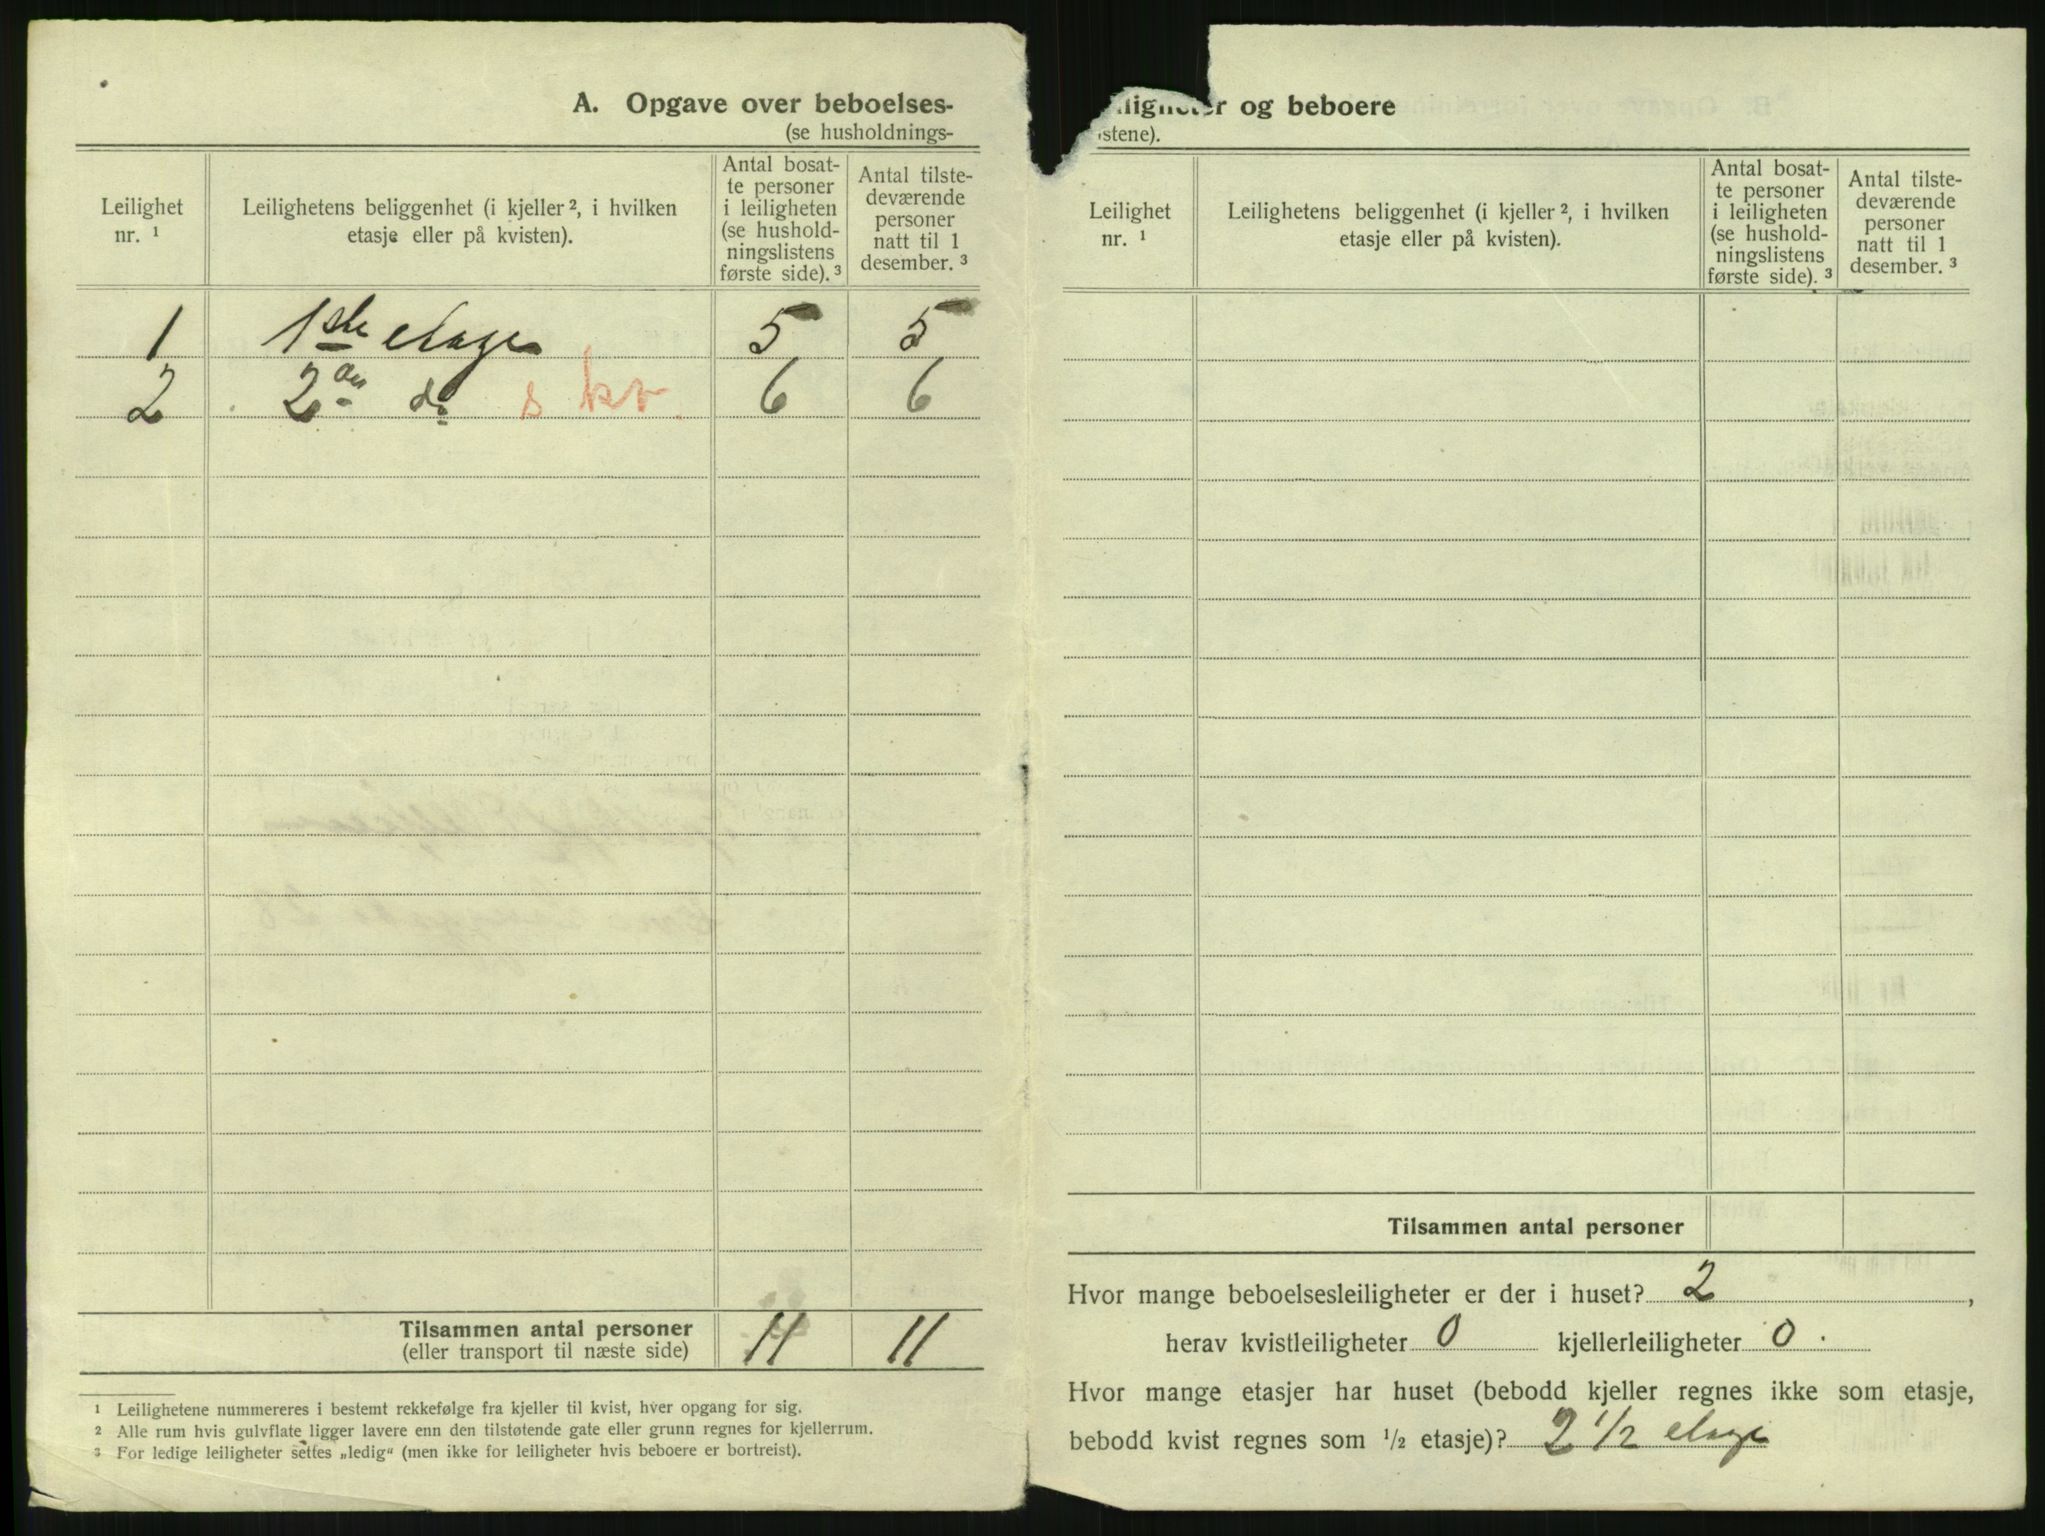 A. Opgave over beboelses-
(se husholdnings-
Leilighet nr. ¹
Leilighetens beliggenhet (i kjeller ², i hvilken etasje eller på kvisten).
Antal bosat-
te personer
i leiligheten
(se hushold-
ningslistens
første side). ³
Antal tilste-
deværende
personer
natt til 1
desember. ³
1 1ste etage 5 5
2 2den do s kv. 6 6
Tilsammen antal personer 11 11
(eller transport til næste side)
¹ Leilighetene nummereres i bestemt rekkefølge fra kjeller til kvist, hver opgang for sig.
² Alle rum hvis gulvflate ligger lavere enn den tilstøtende gate eller grunn regnes for kjellerrum.
³ For ledige leiligheter settes „ledig“ (men ikke for leiligheter hvis beboere er bortreist).
iligheter og beboere
istene).
Leilighet nr. ¹
Leilighetens beliggenhet (i kjeller ², i hvilken etasje eller på kvisten).
Antal bosat-
te personer
i leiligheten
(se hushold-
ningslistens
første side). ³
Antal tilste-
deværende
personer
natt til 1
desember. ³
Tilsammen antal personer
Hvor mange beboelsesleiligheter er der i huset? 2,
herav kvistleiligheter 0 kjellerleiligheter 0.
Hvor mange etasjer har huset (bebodd kjeller regnes ikke som etasje,
bebodd kvist regnes som ½ etasje)? 2 1/2 etage